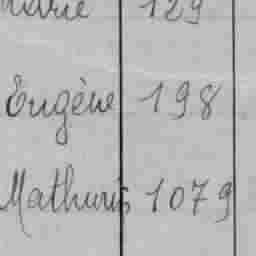 Marie 129
Eugène 198
Mathuris 1079